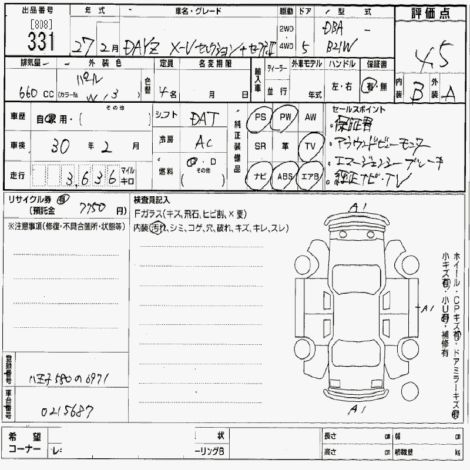 出品番号 年式 車名・グレード ドア 型式 評価点
[808] 331 27年 2月 DAYZ X-Vセレクション+セーフティⅡ 2WD 4WD 5 DBA- B21W 4.5
排気量 外装色 色替 定員 名変期限 輸入車 ディーラー 並行 外車モデル ハンドル 保証書 内装 外装
660 cc パール (カラーNo. W13) 4名 月 日 年式 左・右 有・無 B A
車歴 自家用・(その他) シフト DAT 純正装備品 PS PW AW セールスポイント
保証書
車検 30年 2月 冷房 AC SR 革 TV アラウンドビューモニター
エマージェンシーブレーキ
走行 3,636 マイル キロ 燃料 ・D (その他) ナビ ABS エアB 純正ナビ・TV
リサイクル券 有
(預託金 7750円)
検査員記入
Fガラス(キズ、飛石、ヒビ割、×要)
※注意事項(修復・不具合箇所・状態等)
内装(汚れ、シミ、コゲ、穴、破れ、キズ、キレ、スレ)
A1
A1
A1
ホイール・CPキズ有・ドアミラーキズ有
小キズ有・小U有・補修有
登録番号 八王子580の6971
車台番号 0215687
希望コーナー レ- 状 ーリングB 長さ cm 幅 cm 高さ cm 積載量 kg